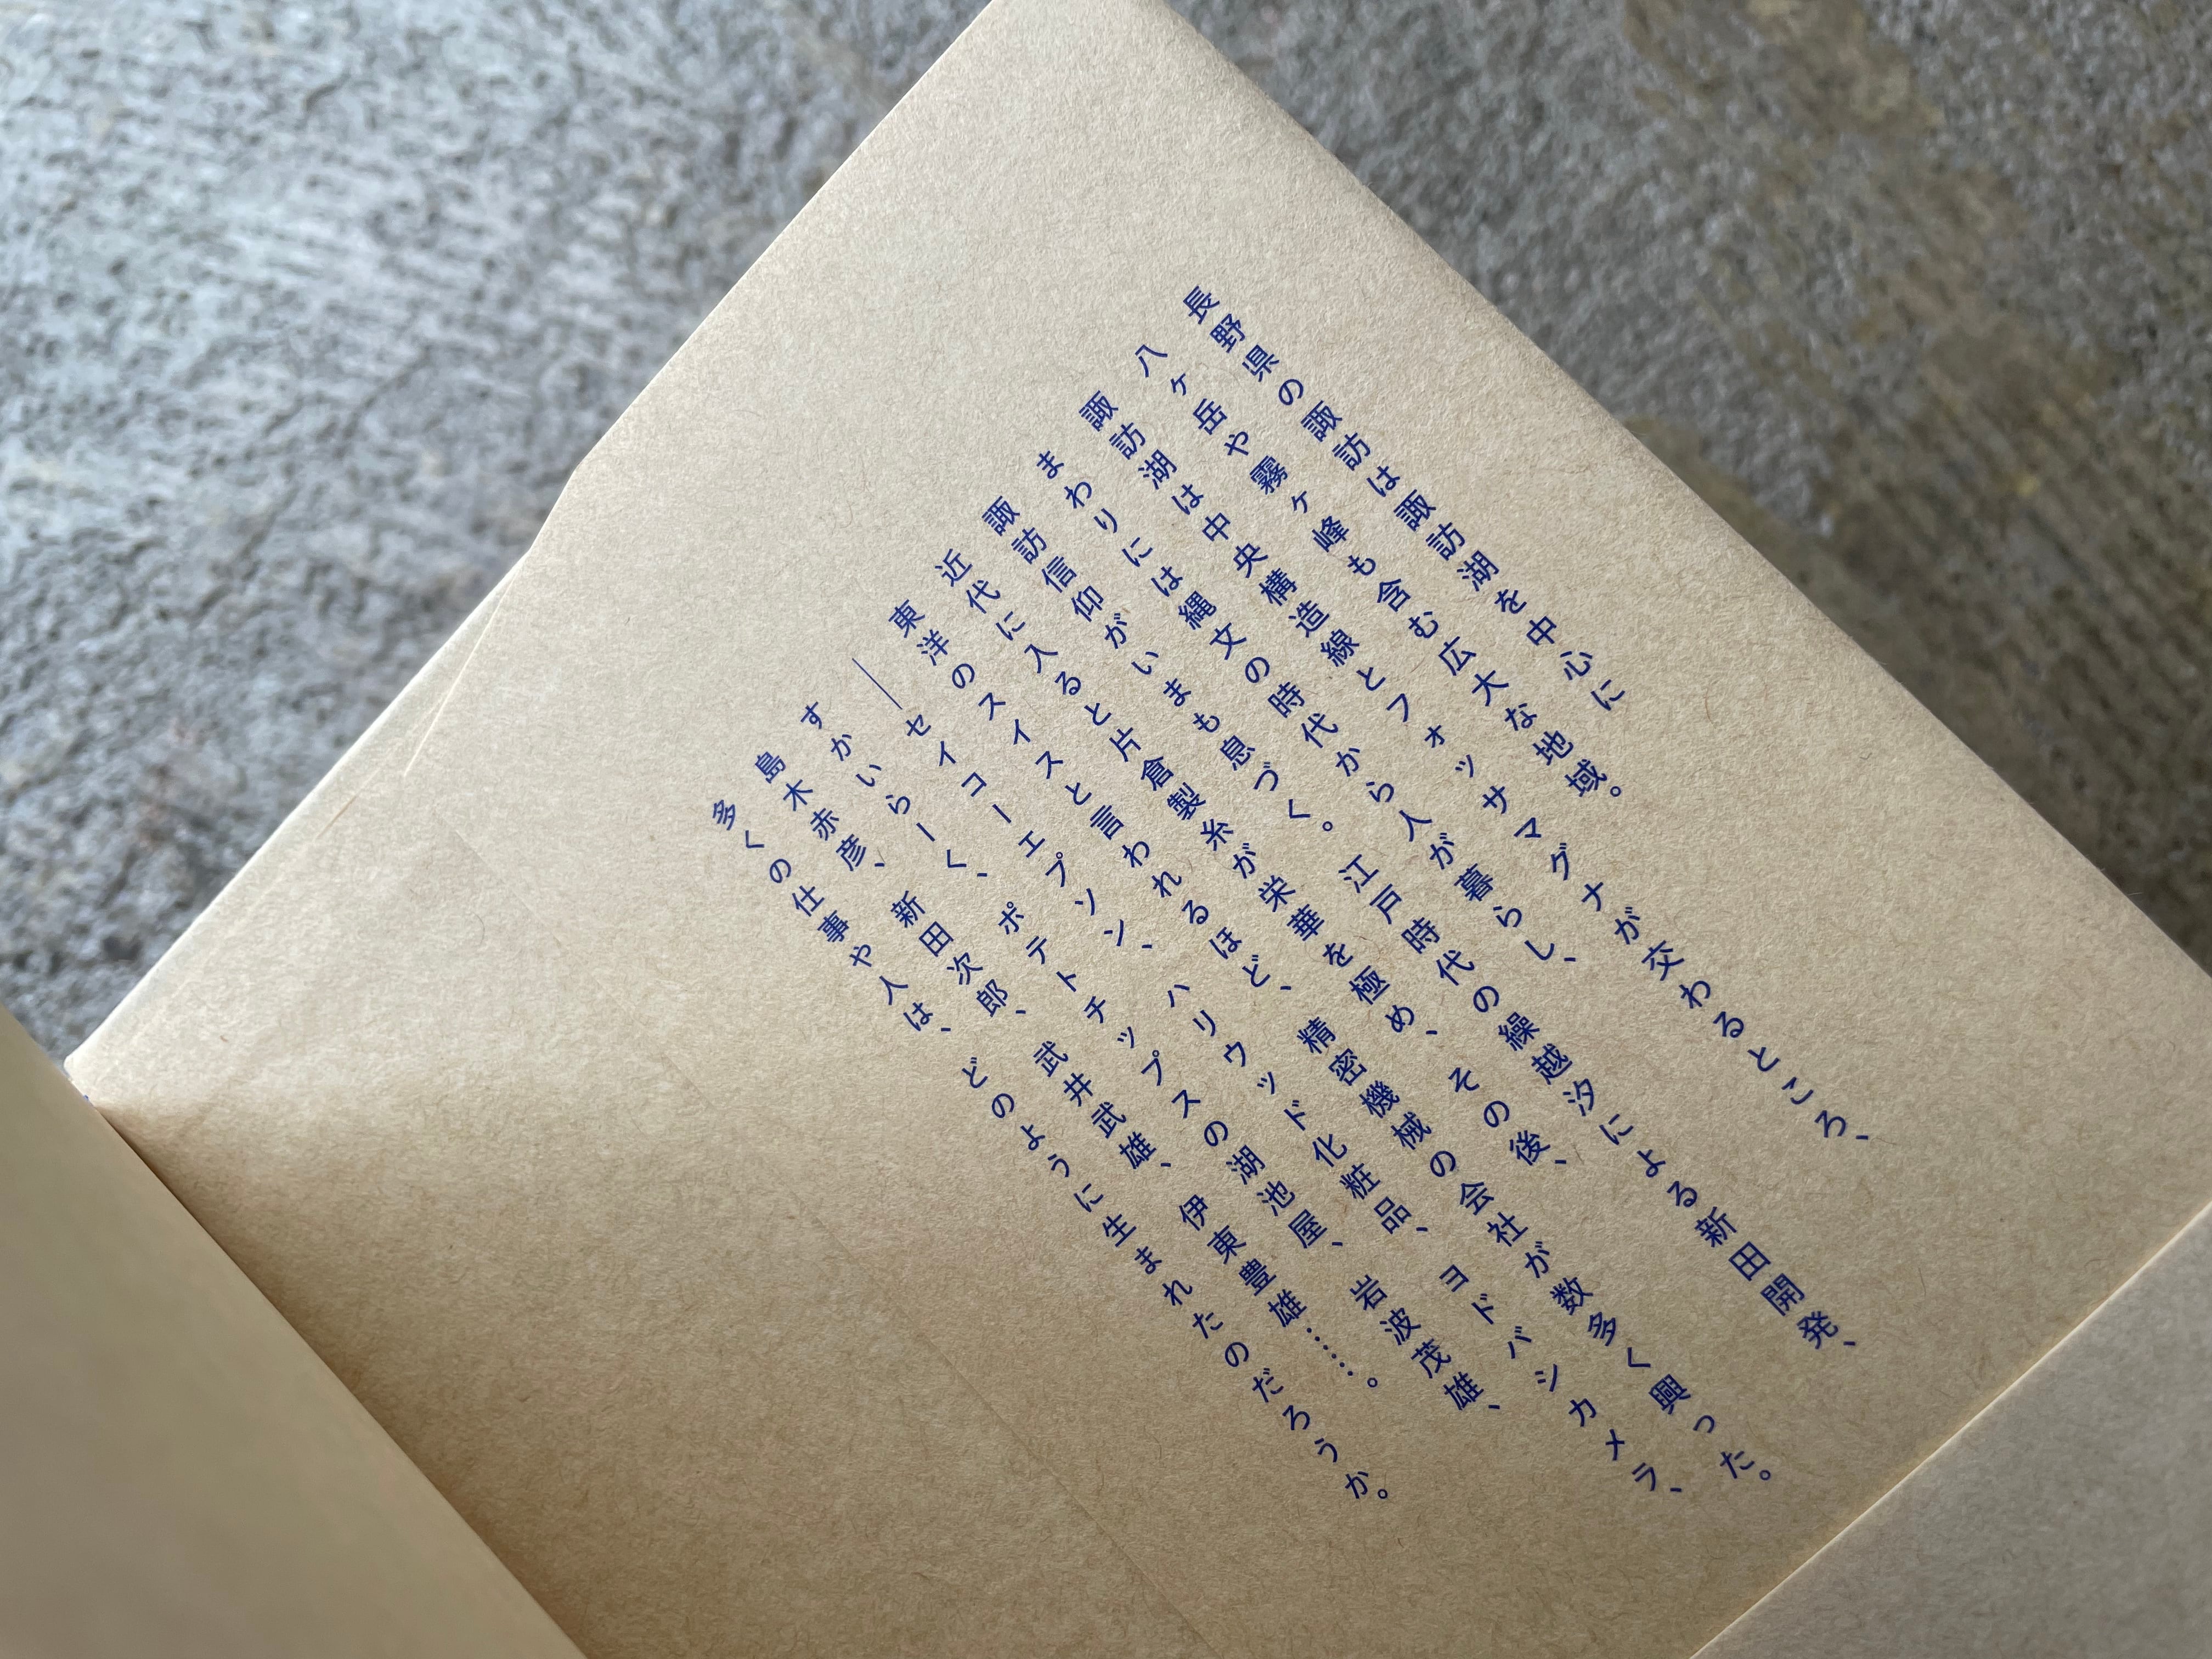 長野県の諏訪は諏訪湖を中心に
八ヶ岳や霧ヶ峰も含む広大な地域。
諏訪湖は中央構造線とフォッサマグナが交わるところ、
まわりには縄文の時代から人が暮らし、
諏訪信仰がいまも息づく。江戸時代の繰越汐による新田開発、
近代に入ると片倉製糸が栄華を極め、その後、
東洋のスイスと言われるほど、精密機械の会社が数多く興った。
──セイコーエプソン、ハリウッド化粧品、ヨドバシカメラ、
すかいらーく、ポテトチップスの湖池屋、岩波茂雄、
島木赤彦、新田次郎、武井武雄、伊東豊雄……。
多くの仕事や人は、どのように生まれたのだろうか。